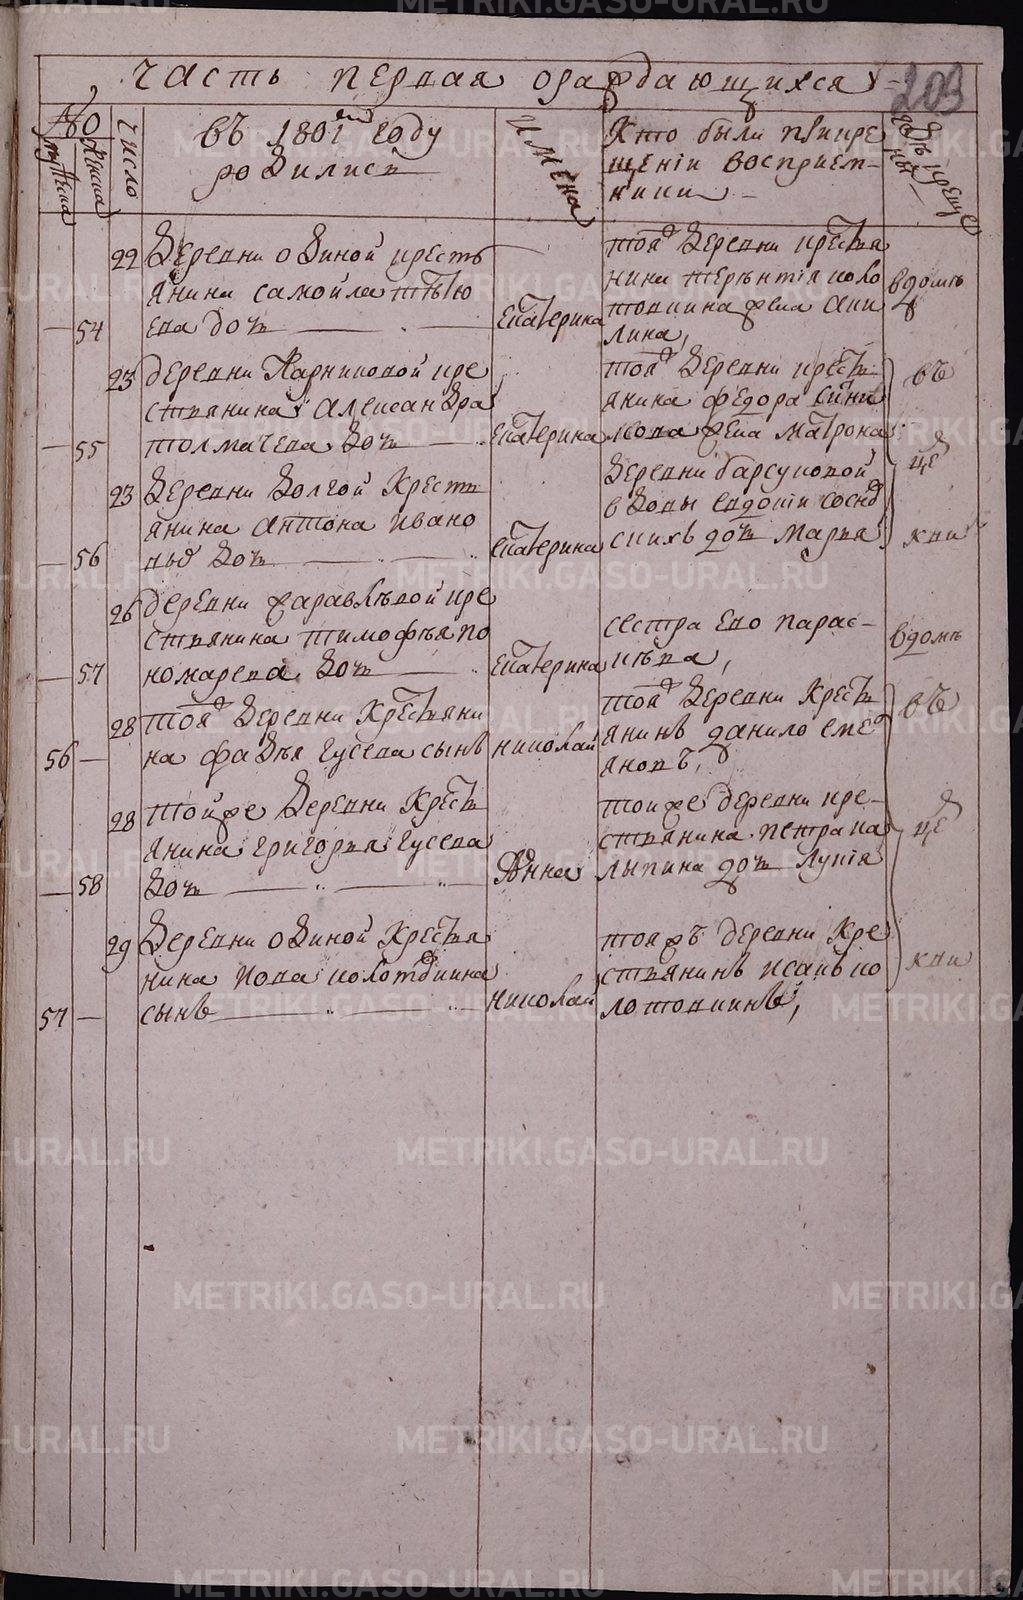 часть первая оражdающихся
203
№
мужска
женска
число
въ 1801 году
родилися
Имена
Кто были прикре
щеніи восприем
ники
22 Деревни одиной кресть
янина самойла
ева дочь
54
Екатерина
тоя деревни крестья
нина терѣнтія коло
товкина жена Аки
лина,
вдомѣ
23 деревни Карниковой кре
стьянина Александра
толмачева дочь
55
Екатерина
тоя деревни кресть
янина федора
кова жена матрона
23 деревни долгой кресть
янина антона ивано
дочь
56
Екатерина
деревни барсуковой
вдовы евдокіи
дочь Марья
въ
це
кви
26 деревни жаравлѣвой кре
стьянина тимофѣя по
номарева дочь
57
Екатерина
сестра ево парас
кѣва,
вдомѣ
28 тоя деревни крестьяни
на фадѣя гусева сынъ
56
николай
тоя деревни кресть
янинъ данило емел
яновъ,
28 тойже деревни кресть
янина григорья гусева
дочь
58
Анна
тойже деревни кре
стьянина петра па
лыкина дочь лукія
29 деревни одиной крестья
нина колотовкина
сынъ
57
николай
тоя жъ деревни кре
стьянинъ исакъ ко
лотовкинъ,
въ
це
кви
METRIKI.GASO-URAL.RU